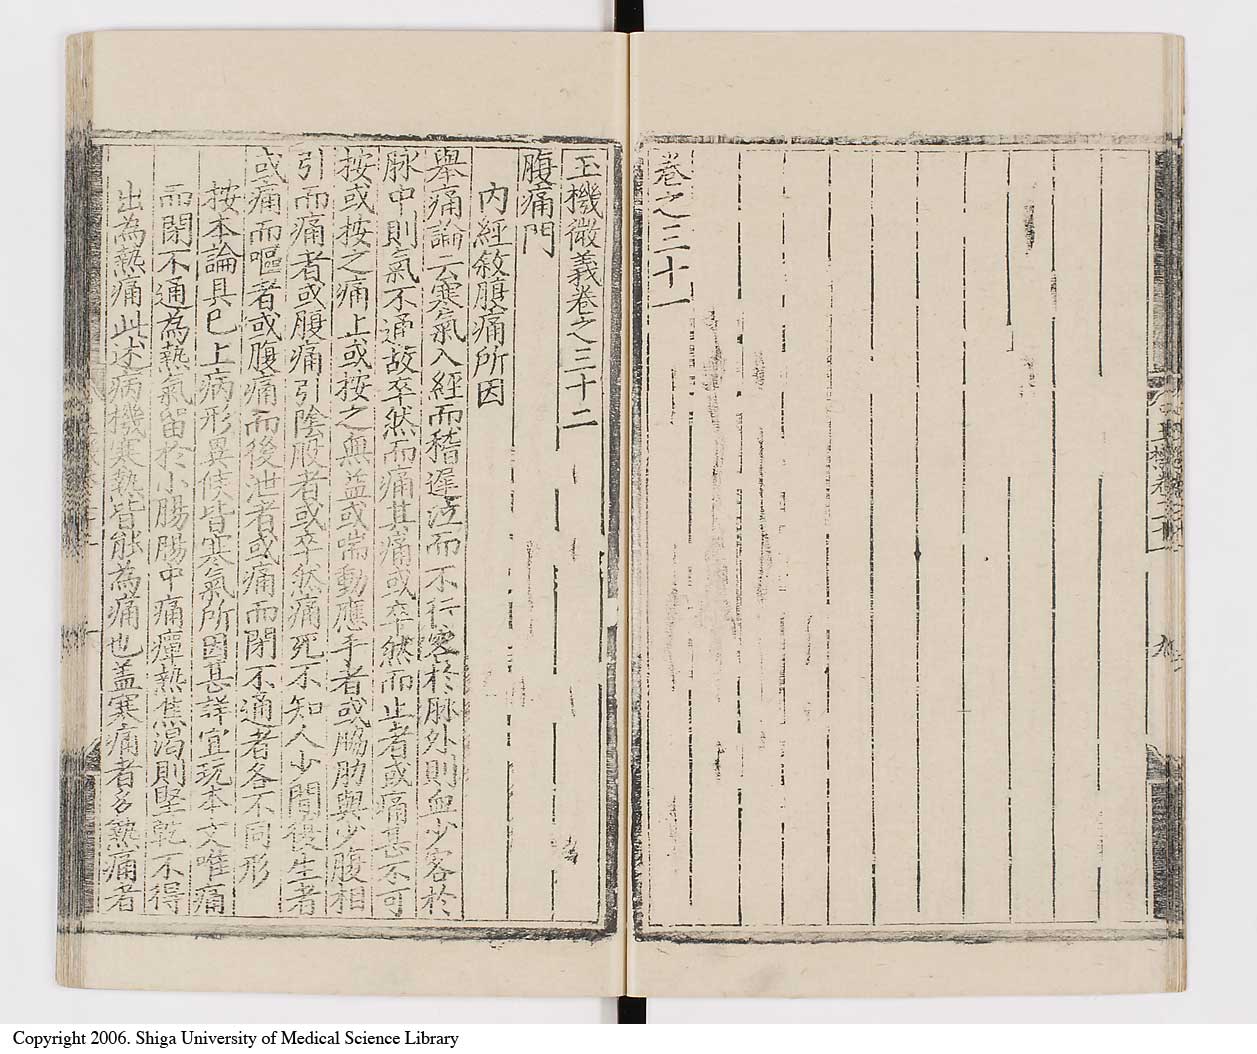 卷之三十一
玉機微義卷之三十二
腹痛門
內經敘腹痛所因
舉痛論云寒氣入經而稽遲泣而不行客於脉外則血少客於
脉中則氣不通故卒然而痛其痛或卒然而止者或痛甚不可
按或按之痛止或按之無益或喘動應手者或脇肋與少腹相
引而痛者或腹痛引陰股者或卒然痛死不知人少間復生者
或痛而嘔者或腹痛而後泄者或痛而閉不通者各不同形
按本論具已上病形異候皆寒氣所因甚詳宜玩本文唯痛
而閉不通為熱氣留於小腸腸中痛癉熱焦渴則堅乾不得
出為熱痛此述病機寒熱皆能為痛也盖寒痛者多熱痛者
Copyright 2006. Shiga University of Medical Science Library